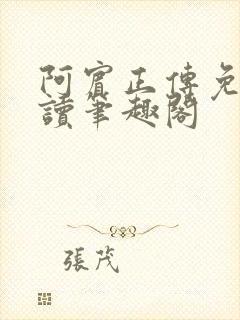 阿賓正傳免
讀筆趣閣
張茂